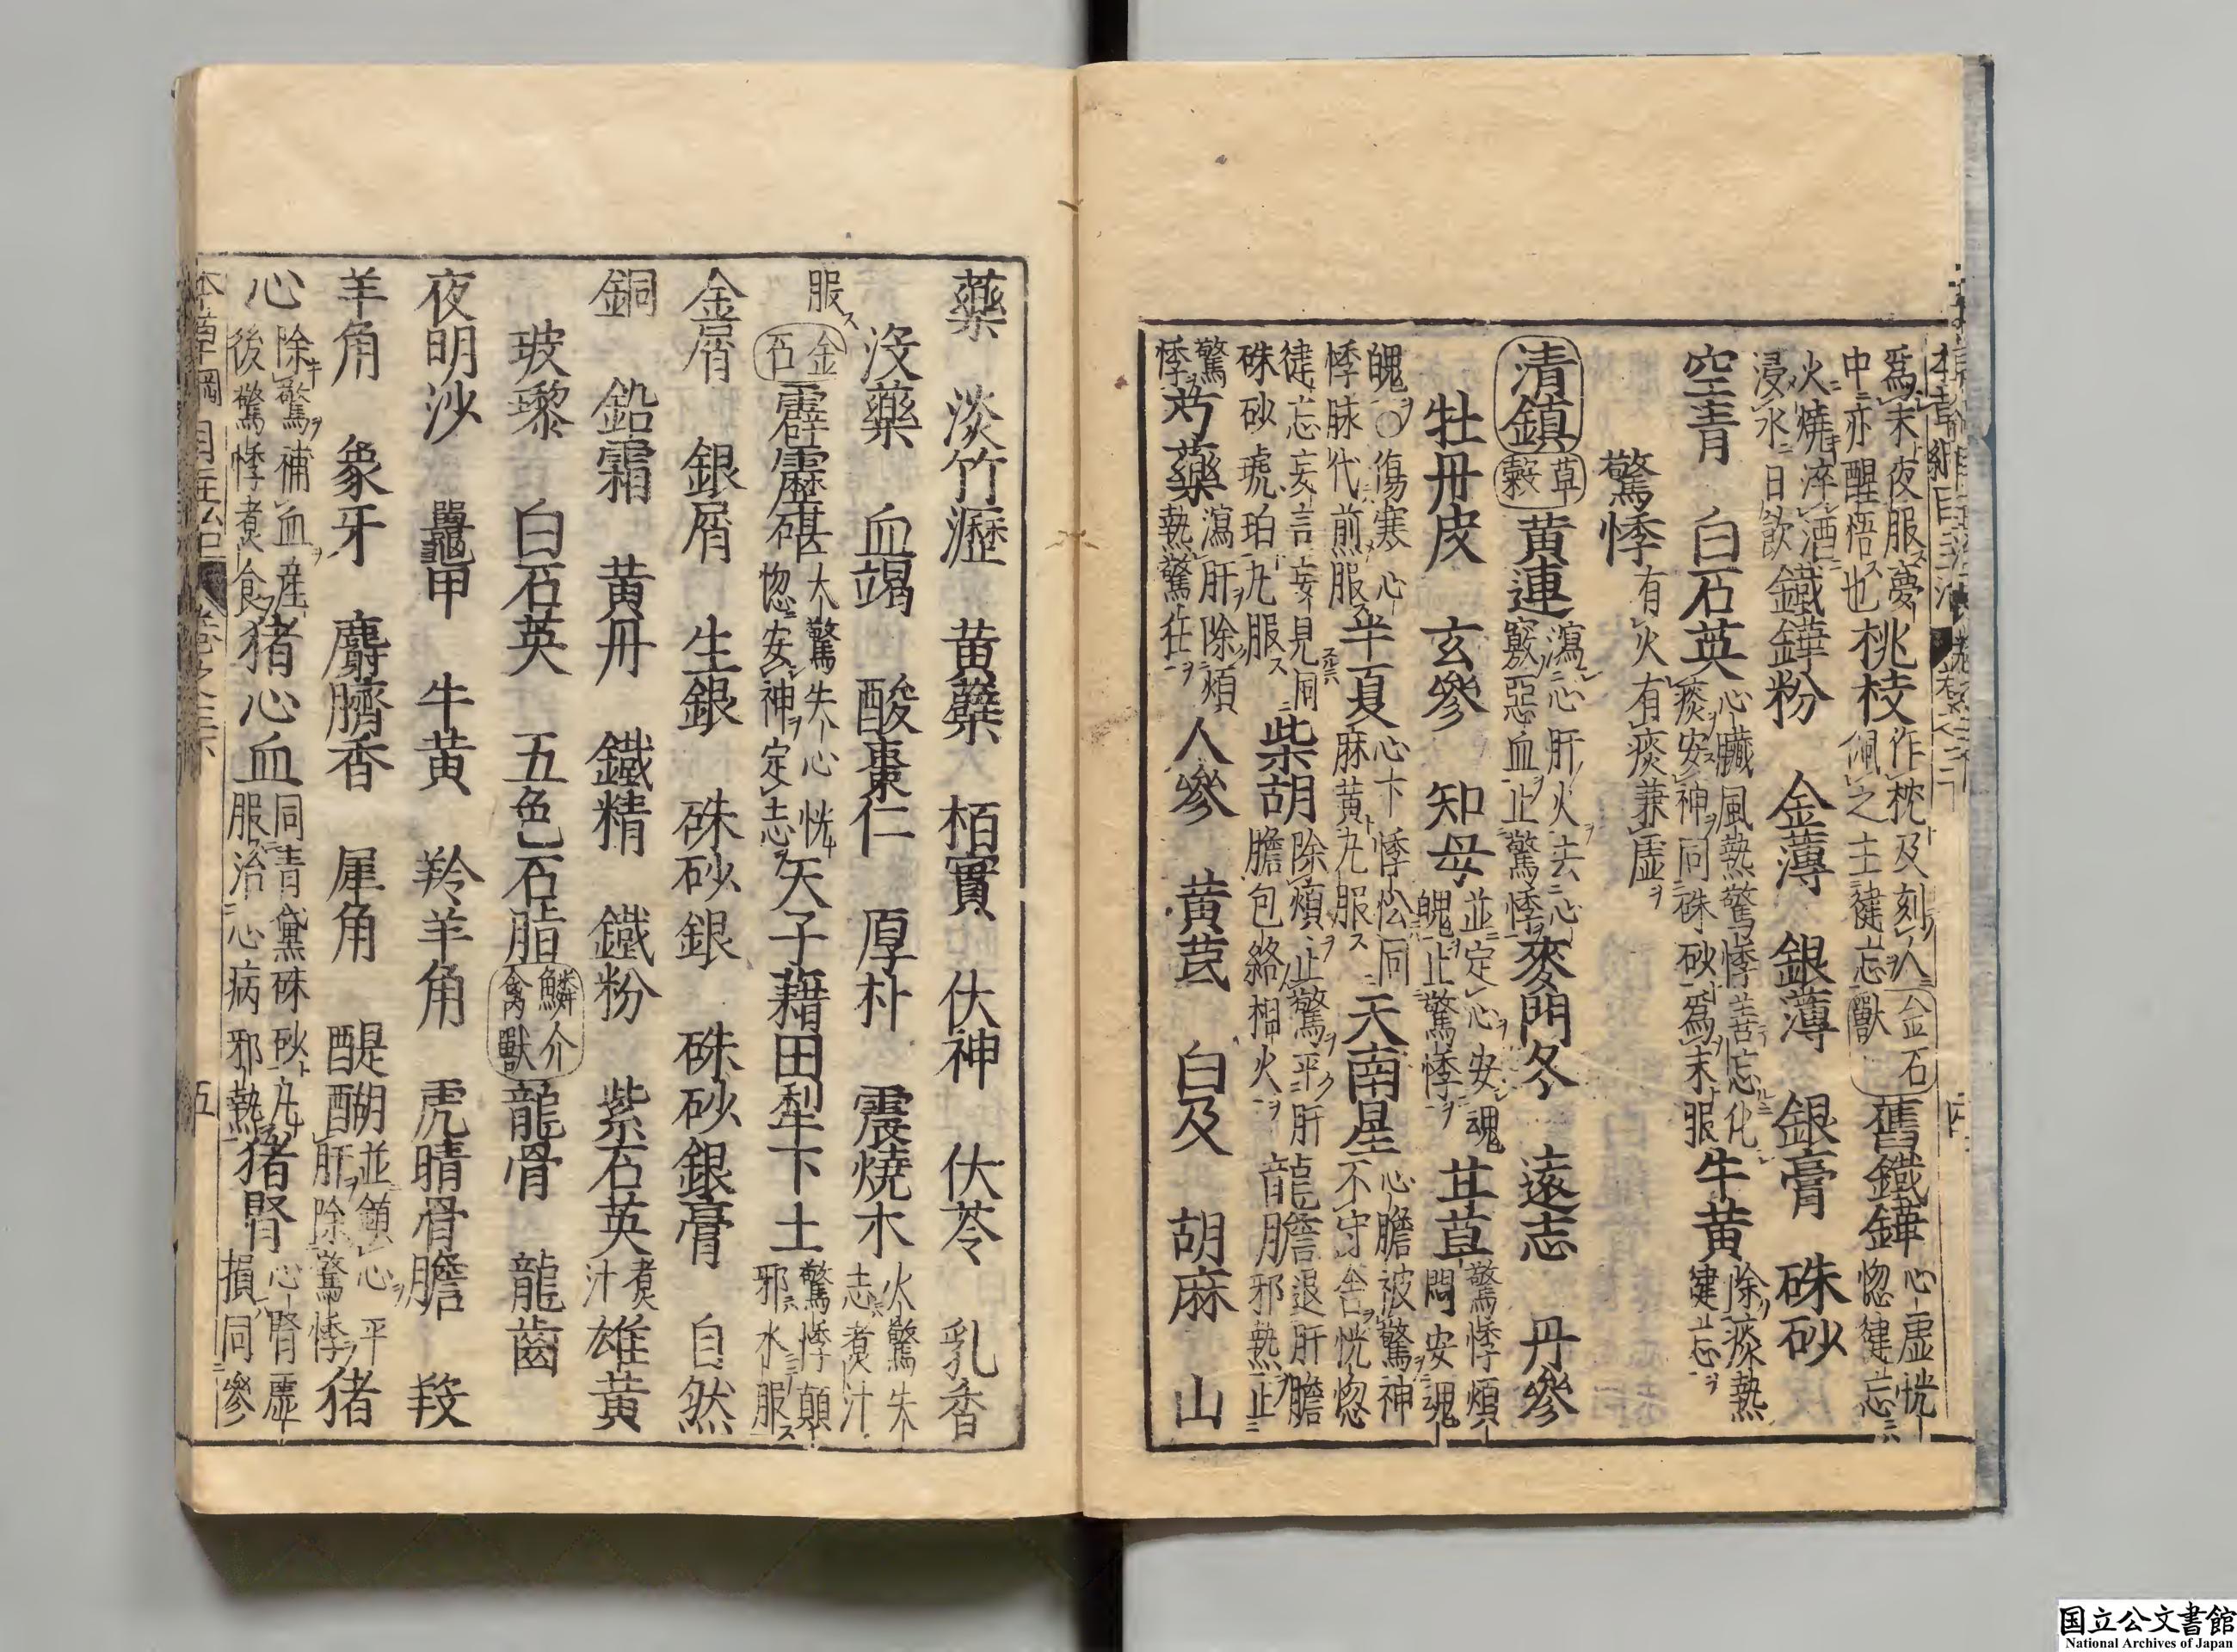 爲末夜服夢中亦醒悟也桃枝作枕及刻人佩之主健忘金石獸舊鐵鏵心虚恍惚健忘
火燒淬酒浸水日飲鐵鏵粉 金薄 銀薄 銀膏 硃砂
空青 白石英心臟風熱驚悸善忘化痰安神同硃砂爲末服牛黄除痰熱健忘
驚悸有火有痰兼虚
清鎮草穀黄連瀉心肝火去心竅惡血止驚悸麥門冬 遠志 丹參
牡丹皮 玄參 知母並定心安魂魄止驚悸苴驚悸煩悶安魂
魄○傷寒心悸脉代煎服半夏心下悸忪同麻黄丸服天南星心膽被驚神不守舍恍惚
健忘妄言妄見同硃砂琥珀丸服柴胡除煩止驚平肝膽包絡相火龍膽退肝膽邪熱止
驚悸芍藥瀉肝除煩熱驚狂人參 黄芪 白及 胡麻 山
藥 淡竹瀝 黄蘗 栢實 伏神 伏苓 乳香
沒藥 血竭 酸棗仁 厚朴 震燒木火驚失志煮汁
服金石霹靂碪大驚失心恍惚安神定志天子藉田犁下土驚悸顛邪水服
金屑 銀屑 生銀 硃砂銀 硃砂銀膏 自然
銅 鉛霜 黄丹 鐵精 鐵粉 紫石英煮汁雄黄
玻瓈 白石英 五色石脂鱗介禽獸龍骨 龍齒
夜明沙 鼉甲 牛黄 羚羊角 虎睛骨膽 羖
羊角 象牙 麝臍香 犀角 醍醐並鎮心平肝除驚悸猪
心除驚補血產後驚悸煮食猪心血同青黛硃砂丸服治心病邪熱猪腎心腎虚損同參
五
国立公文書館
National Archives of Japan